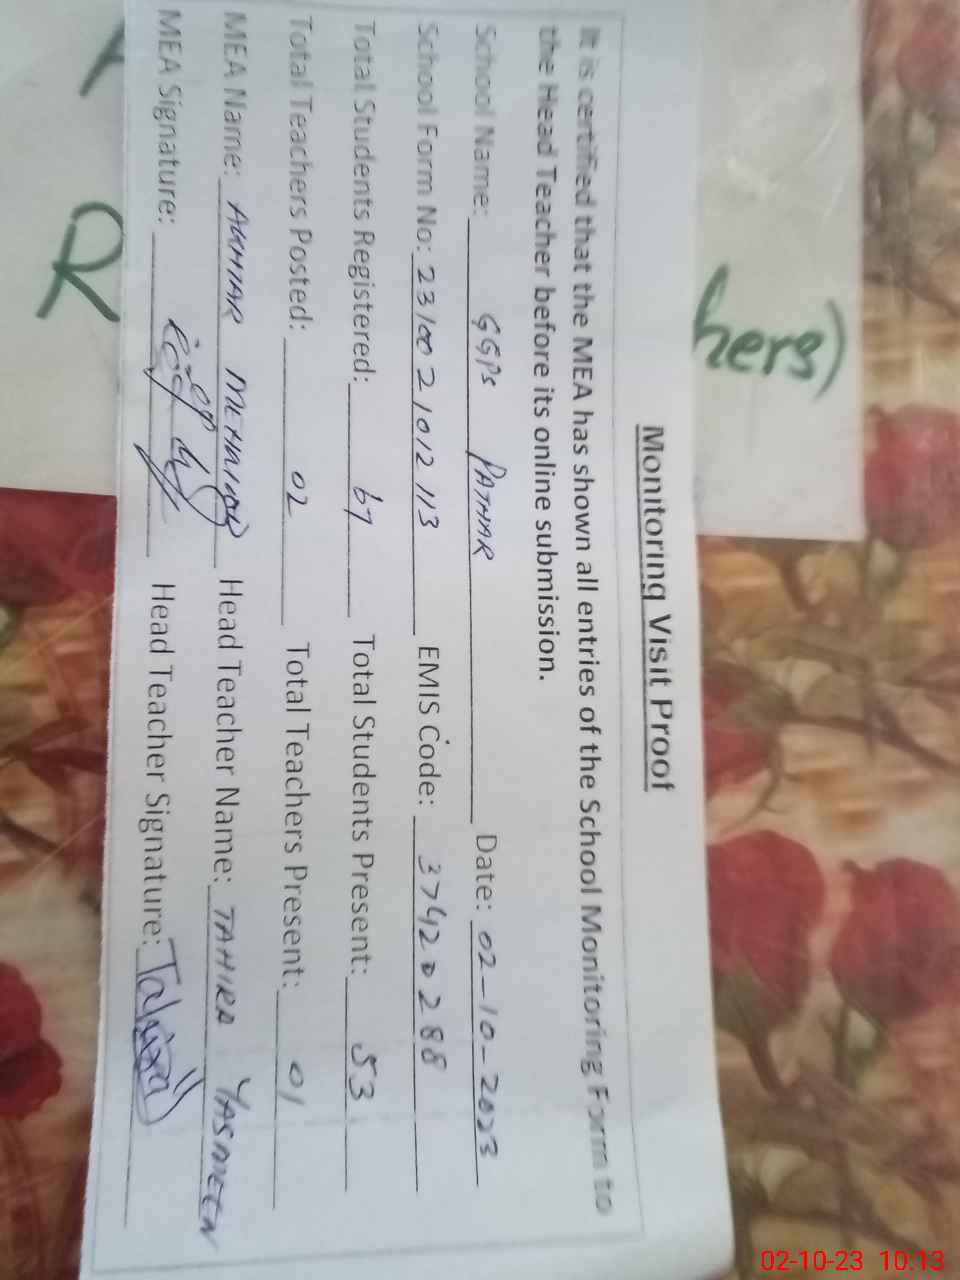 Monitoring Visit Proof
It is certified that the MEA has shown all entries of the School Monitoring Form to
the Head Teacher before its online submission.
School Name: GGPS PATHAR Date: 02-10-2023
School Form No: 23100 21012 113 EMIS Code: 37420288
Total Students Registered: 67 Total Students Present: 53
Total Teachers Posted: 02 Total Teachers Present: 01
MEA Name: AKHTAR MEHMOOD Head Teacher Name: TAHIRA YASMEEN
MEA Signature: Head Teacher Signature: Tahira
hers)
R
02-10-23 10:13